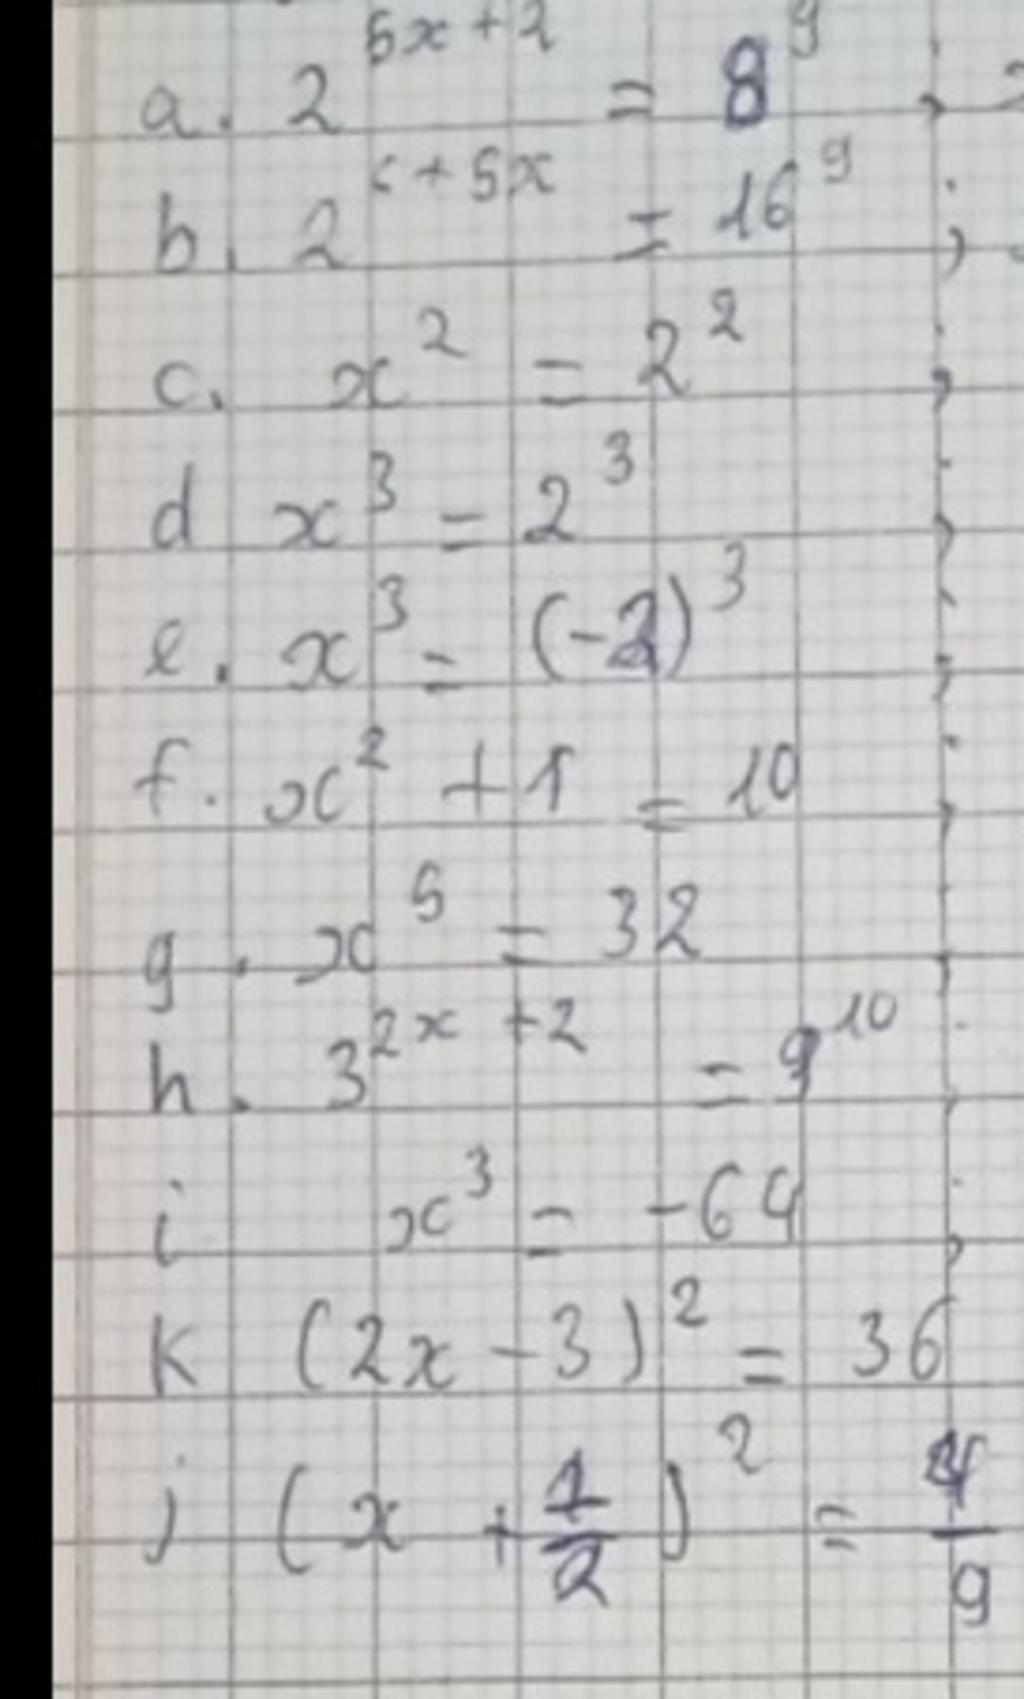 a. 2^5x+2 = 8^9 ;
b. 2^+5x = 16^9 ;
c. x^2 = 2^2 ;
d x^3 = 2^3 ;
e. x^3 = (-2)^3 ;
f. x^2 + 1 = 10 ;
g. x^5 = 32 ;
h. 3^2x+2 = 9^10 ;
i x^3 = -64 ;
K (2x - 3)^2 = 36
j (x + 1/2)^2 = 4/9